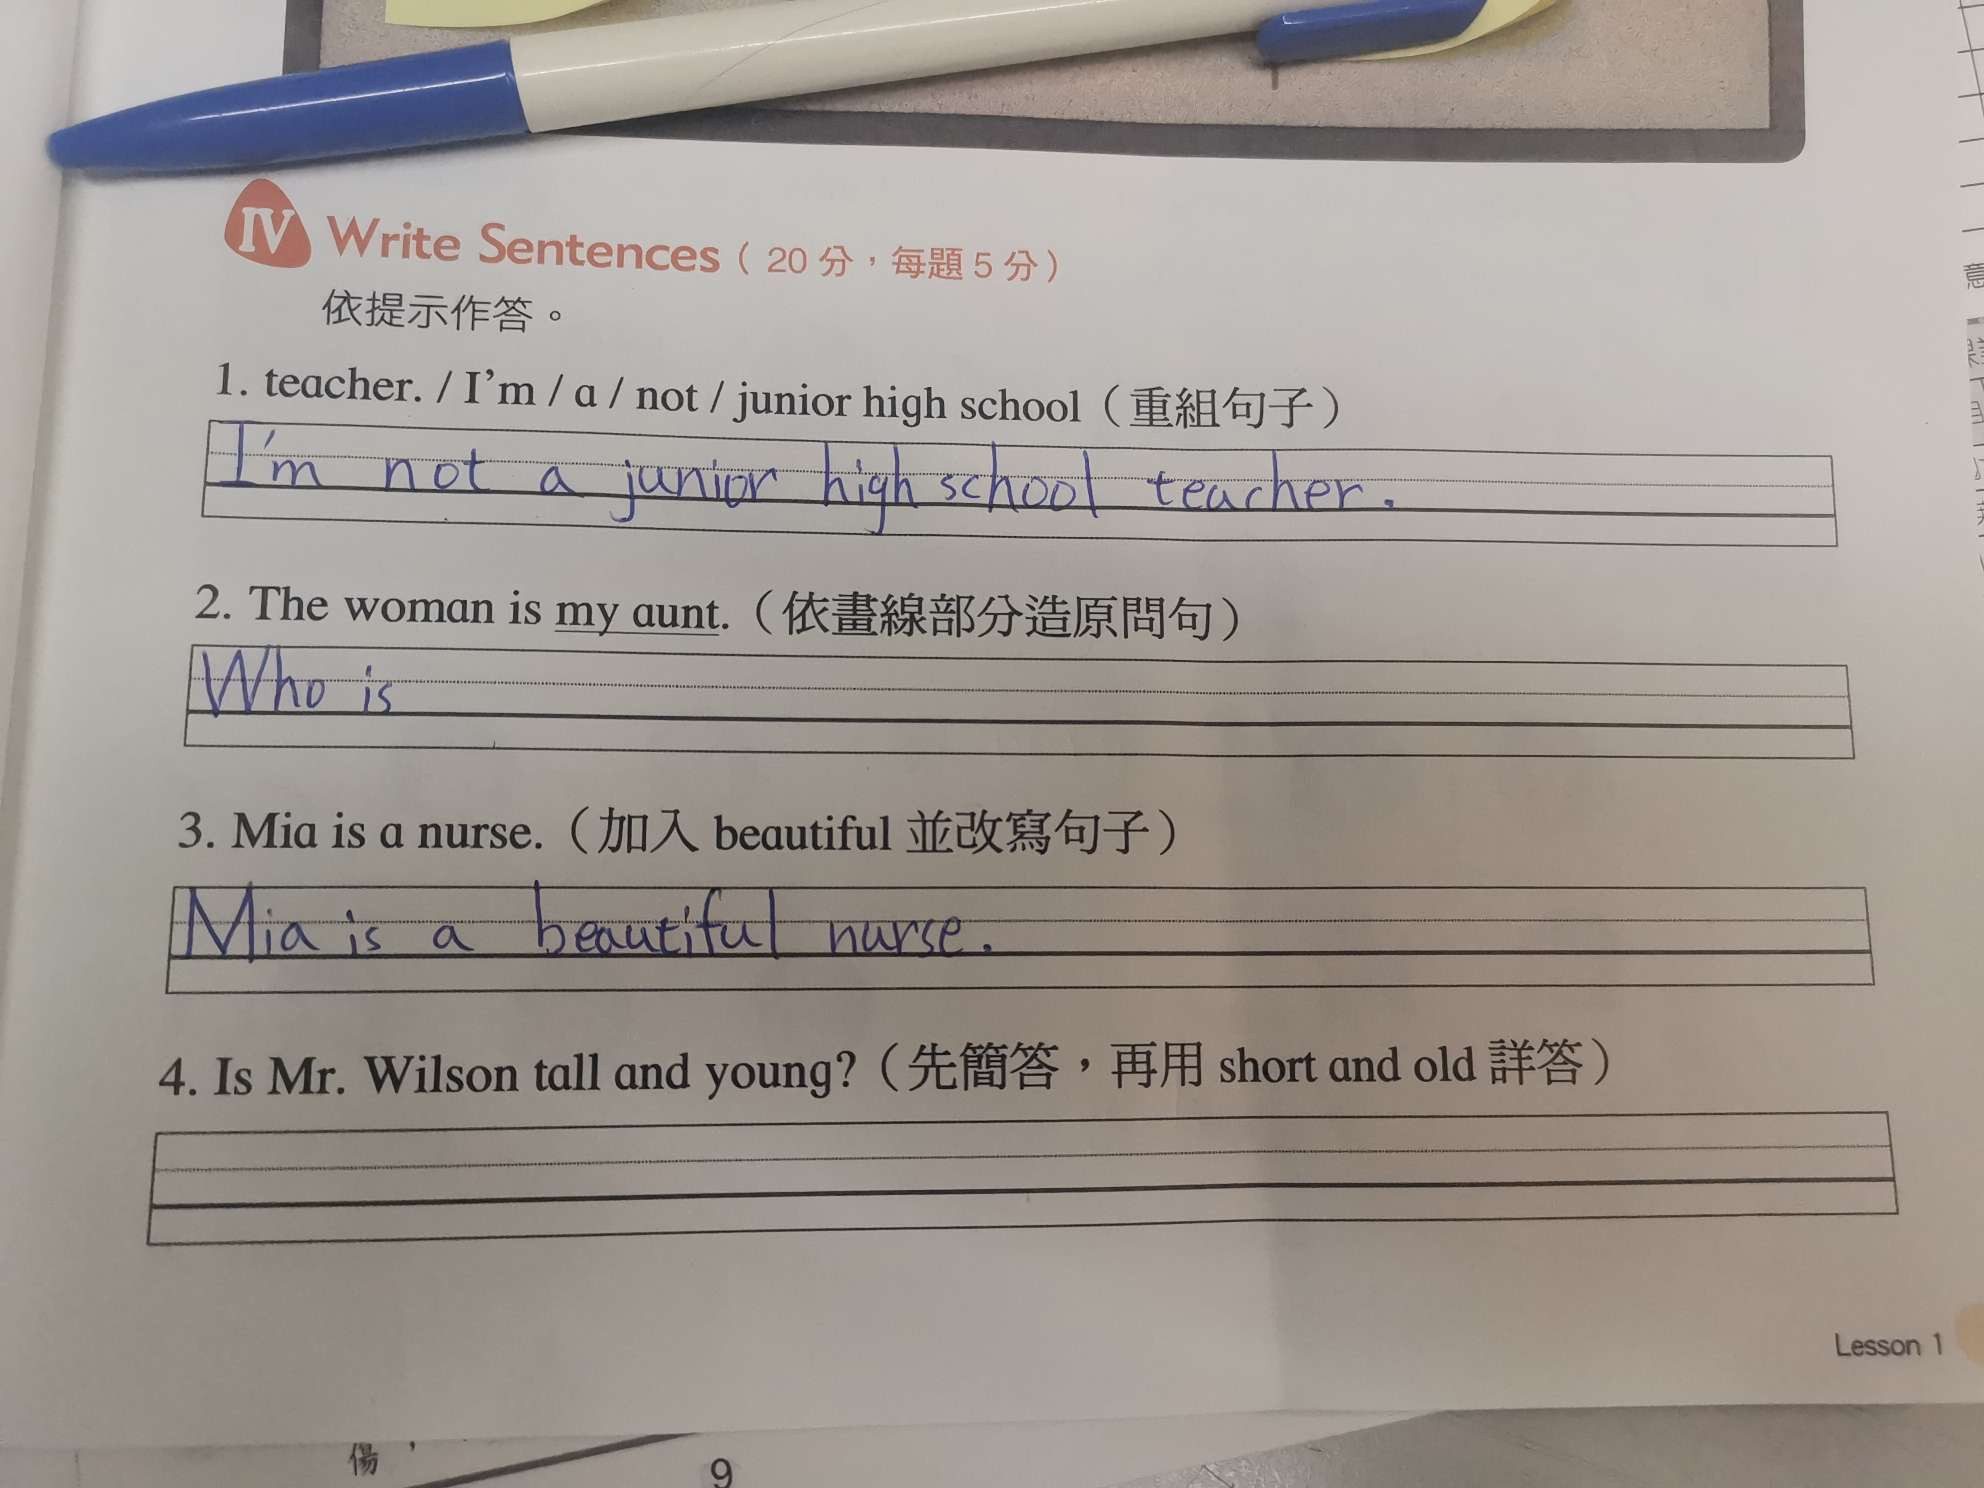 IV Write Sentences（20分，每題5分）
依提示作答。
1. teacher. / I'm / a / not / junior high school（重組句子）
I'm not a junior high school teacher.
2. The woman is my aunt.（依畫線部分造原問句）
Who is
3. Mia is a nurse.（加入 beautiful 並改寫句子）
Mia is a beautiful nurse.
4. Is Mr. Wilson tall and young?（先簡答，再用 short and old 詳答）
Lesson 1
傷，
9
意